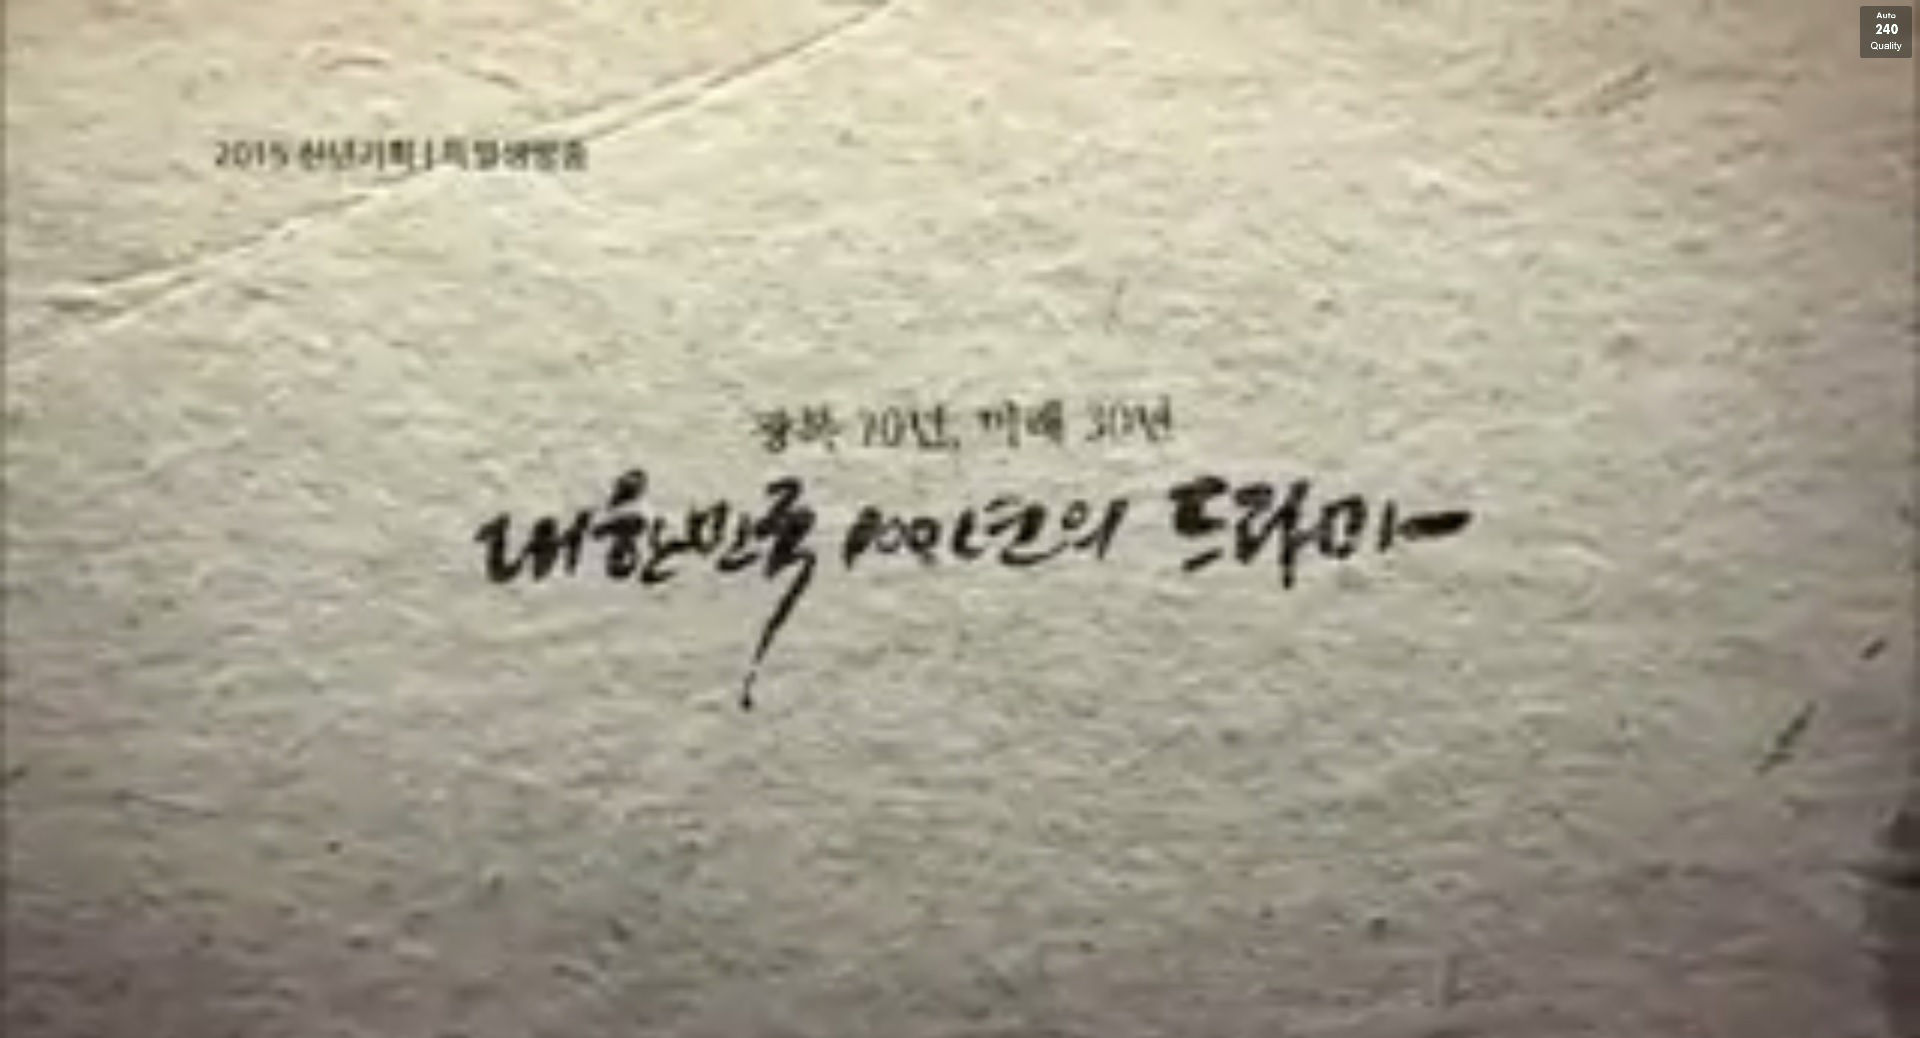 Auto
240
Quality
2015 신년기획 | 특별생방송
광복 70년, 미래 30년
대한민국 100년의 드라마